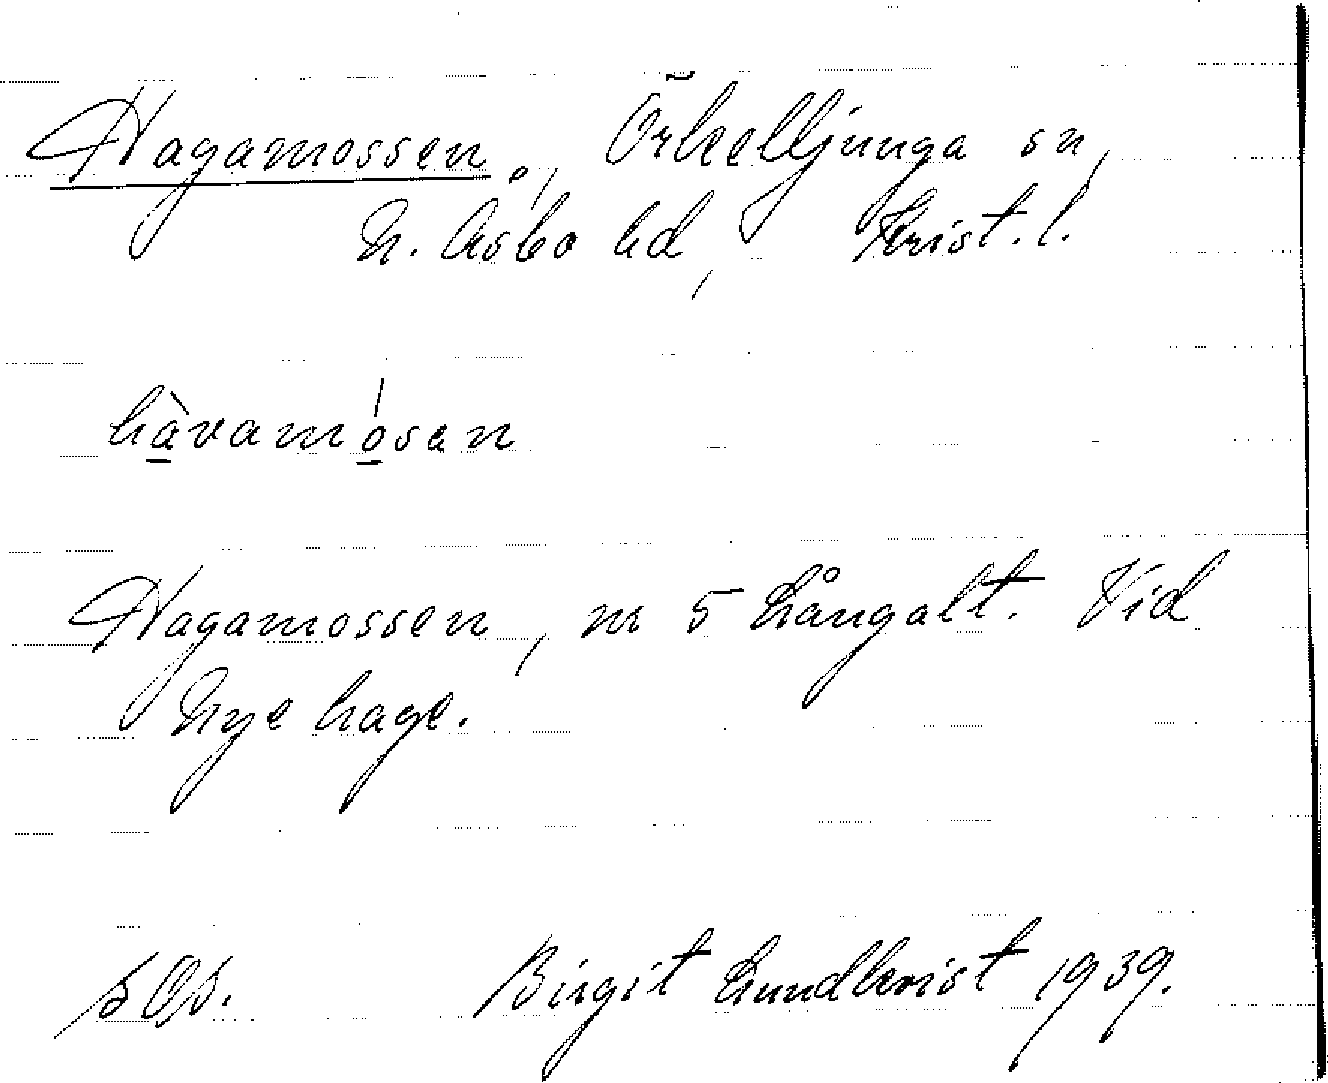 Hagamossen, Örkelljunga sn,
N. Åsbo hd, Krist. l.
hàvamósen
Hagamossen, nr 5 Långalt. Vid
Nye hage.
SOS. Birgit Lundkvist 1939.